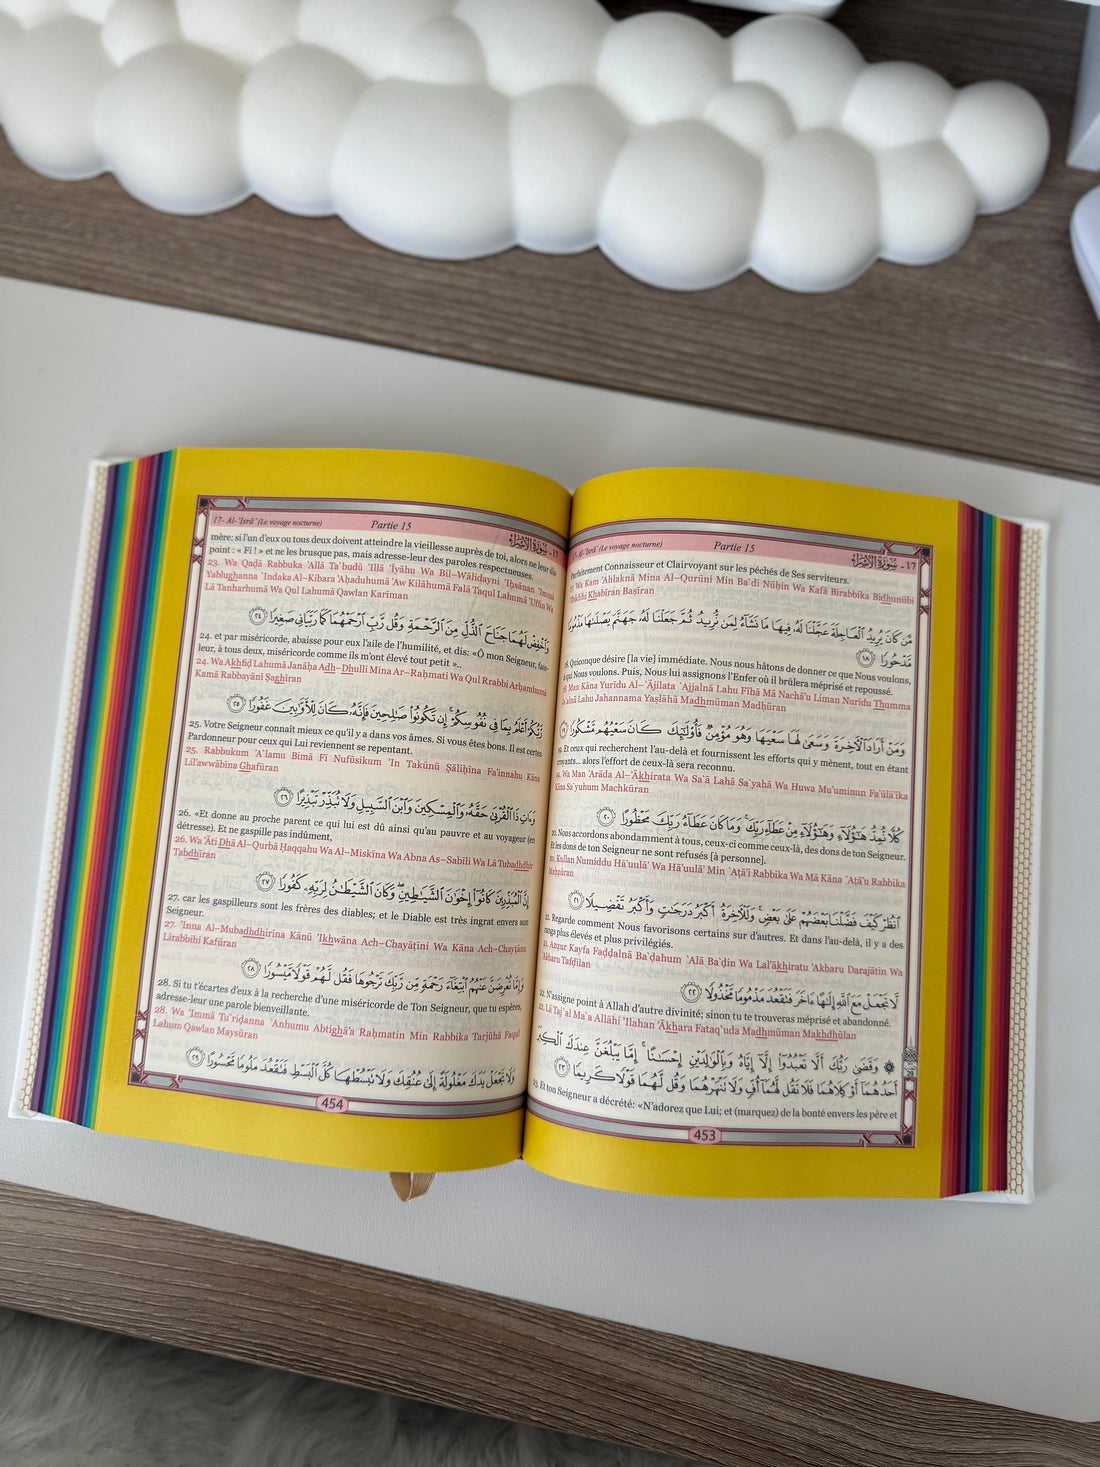 17- Al-'Isrā' (Le voyage nocturne) Partie 15 سورة الإسراء - 17
Parfaitement Connaisseur et Clairvoyant sur les péchés de Ses serviteurs.
Wa Kam 'Ahlaknā Mina Al–Qurūni Min Ba`di Nūĥin Wa Kafá Birabbika Bidhunūbi
`Ibādihi Khabīran Başīran
مَّن كَانَ يُرِيدُ ٱلْعَاجِلَةَ عَجَّلْنَا لَهُۥ فِيهَا مَا نَشَآءُ لِمَن نُّرِيدُ ثُمَّ جَعَلْنَا لَهُۥ جَهَنَّمَ يَصْلَىٰهَا مَذْمُومًا
مَّدْحُورًا ١٨
18. Quiconque désire [la vie] immédiate. Nous nous hâtons de donner ce que Nous voulons,
à qui Nous voulons. Puis, Nous lui assignons l'Enfer où il brûlera méprisé et repoussé.
18. Man Kāna Yurīdu Al–`Ājilata `Ajjalnā Lahu Fīhā Mā Nachā'u Liman Nurīdu Thumma
Ja`alnā Lahu Jahannama Yaşlāhā Madhmūman Madĥūran
وَمَنْ أَرَادَ ٱلْءَاخِرَةَ وَسَعَىٰ لَهَا سَعْيَهَا وَهُوَ مُؤْمِنٌ فَأُو۟لَٰٓئِكَ كَانَ سَعْيُهُم مَّشْكُورًا ١٩
19. Et ceux qui recherchent l'au-delà et fournissent les efforts qui y mènent, tout en étant
croyants... alors l'effort de ceux-là sera reconnu.
19. Wa Man 'Arāda Al–'Ākhirata Wa Sa`á Lahā Sa`yahā Wa Huwa Mu'uminun Fa'ūlā'ika
Kāna Sa`yuhum Machkūran
كُلًّا نُّمِدُّ هَٰٓؤُلَآءِ وَهَٰٓؤُلَآءِ مِنْ عَطَآءِ رَبِّكَ وَمَا كَانَ عَطَآءُ رَبِّكَ مَحْظُورًا ٢٠
20. Nous accordons abondamment à tous, ceux-ci comme ceux-là, des dons de ton Seigneur.
Et les dons de ton Seigneur ne sont refusés [à personne].
20. Kullan Numiddu Hā'uulā' Wa Hā'uulā' Min `Aţā'i Rabbika Wa Mā Kāna `Aţā'u Rabbika
Maĥžūran
ٱنظُرْ كَيْفَ فَضَّلْنَا بَعْضَهُمْ عَلَىٰ بَعْضٍ وَلَلْءَاخِرَةُ أَكْبَرُ دَرَجَٰتٍ وَأَكْبَرُ تَفْضِيلًا ٢١
21. Regarde comment Nous favorisons certains sur d'autres. Et dans l'au-delà, il y a des
rangs plus élevés et plus privilégiés.
21. Anžur Kayfa Fađđalnā Ba`đahum `Alá Ba`đin Wa Lal'ākhiratu 'Akbaru Darajātin Wa
'Akbaru Tafđīlan
لَّا تَجْعَلْ مَعَ ٱللَّهِ إِلَٰهًا ءَاخَرَ فَتَقْعُدَ مَذْمُومًا مَّخْذُولًا ٢٢
22. N'assigne point à Allah d'autre divinité; sinon tu te trouveras méprisé et abandonné.
22. Lā Taj`al Ma`a Allāhi 'Ilahan 'Ākhara Fataq`uda Madhmūman Makhdhūlan
۞ وَقَضَىٰ رَبُّكَ أَلَّا تَعْبُدُوٓا۟ إِلَّآ إِيَّاهُ وَبِٱلْوَٰلِدَيْنِ إِحْسَٰنًا إِمَّا يَبْلُغَنَّ عِندَكَ ٱلْكِبَرَ
أَحَدُهُمَآ أَوْ كِلَاهُمَا فَلَا تَقُل لَّهُمَآ أُفٍّ وَلَا تَنْهَرْهُمَا وَقُل لَّهُمَا قَوْلًا كَرِيمًا ٢٣
23. Et ton Seigneur a décrété: «N'adorez que Lui; et (marquez) de la bonté envers les père et
453
17- Al-'Isrā' (Le voyage nocturne) Partie 15 سورة الإسراء - 17
mère: si l'un d'eux ou tous deux doivent atteindre la vieillesse auprès de toi, alors ne leur dis
point : « Fi ! » et ne les brusque pas, mais adresse-leur des paroles respectueuses.
23. Wa Qađá Rabbuka 'Allā Ta`budū 'Illā 'Īyāhu Wa Bil–Wālidayni 'Iĥsānan 'Immā
Yablughanna `Indaka Al–Kibara 'Aĥaduhumā 'Aw Kilāhumā Falā Taqul Lahumā 'Uffin Wa
Lā Tanharhumā Wa Qul Lahumā Qawlan Karīman
وَٱخْفِضْ لَهُمَا جَنَاحَ ٱلذُّلِّ مِنَ ٱلرَّحْمَةِ وَقُل رَّبِّ ٱرْحَمْهُمَا كَمَا رَبَّيَانِى صَغِيرًا ٢٤
24. et par miséricorde, abaisse pour eux l'aile de l'humilité, et dis: «Ô mon Seigneur, fais-
leur, à tous deux, miséricorde comme ils m'ont élevé tout petit »..
24. Wa Akhfiđ Lahumā Janāĥa Adh–Dhulli Mina Ar–Raĥmati Wa Qul Rrabbi Arĥamhumā
Kamā Rabbayānī Şaghīran
رَّبُّكُمْ أَعْلَمُ بِمَا فِى نُفُوسِكُمْ إِن تَكُونُوا۟ صَٰلِحِينَ فَإِنَّهُۥ كَانَ لِلْأَوَّٰبِينَ غَفُورًا ٢٥
25. Votre Seigneur connaît mieux ce qu'il y a dans vos âmes. Si vous êtes bons. Il est certes
Pardonneur pour ceux qui Lui reviennent se repentant.
25. Rabbukum 'A`lamu Bimā Fī Nufūsikum 'In Takūnū Şāliĥīna Fa'innahu Kāna
Lil'awwābīna Ghafūran
وَءَاتِ ذَا ٱلْقُرْبَىٰ حَقَّهُۥ وَٱلْمِسْكِينَ وَٱبْنَ ٱلسَّبِيلِ وَلَا تُبَذِّرْ تَبْذِيرًا ٢٦
26. «Et donne au proche parent ce qui lui est dû ainsi qu'au pauvre et au voyageur (en
détresse). Et ne gaspille pas indûment,
26. Wa 'Āti Dhā Al–Qurbá Ĥaqqahu Wa Al–Miskīna Wa Abna As–Sabīli Wa Lā Tubadhdhir
Tabdhīran
إِنَّ ٱلْمُبَذِّرِينَ كَانُوٓا۟ إِخْوَٰنَ ٱلشَّيَٰطِينِ وَكَانَ ٱلشَّيْطَٰنُ لِرَبِّهِۦ كَفُورًا ٢٧
27. car les gaspilleurs sont les frères des diables; et le Diable est très ingrat envers son
Seigneur.
27. 'Inna Al–Mubadhdhirīna Kānū 'Ikhwāna Ach–Chayāţīni Wa Kāna Ach–Chayţānu
Lirabbihi Kafūran
وَإِمَّا تُعْرِضَنَّ عَنْهُمُ ٱبْتِغَآءَ رَحْمَةٍ مِّن رَّبِّكَ تَرْجُوهَا فَقُل لَّهُمْ قَوْلًا مَّيْسُورًا ٢٨
28. Si tu t'écartes d'eux à la recherche d'une miséricorde de Ton Seigneur, que tu espères,
adresse-leur une parole bienveillante.
28. Wa 'Immā Tu`riđanna `Anhumu Abtighā'a Raĥmatin Min Rabbika Tarjūhā Faqul
Lahum Qawlan Maysūran
وَلَا تَجْعَلْ يَدَكَ مَغْلُولَةً إِلَىٰ عُنُقِكَ وَلَا تَبْسُطْهَا كُلَّ ٱلْبَسْطِ فَتَقْعُدَ مَلُومًا مَّحْسُورًا ٢٩
454